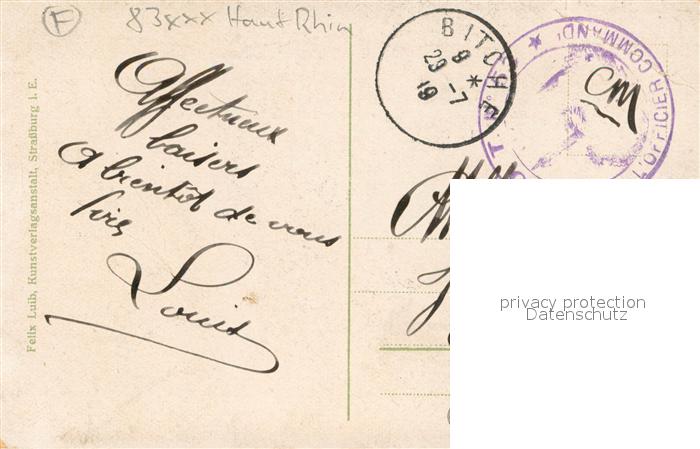 F 83xxx Haut Rhin
Affectueux
baisers
A bientôt de vous
lire
Louis
Felix Luib, Kunstverlagsanstalt, Straßburg i. E.
BITCHE
9
* 29 -7
19
★ L'OFFICIER COMMANDT
CM
privacy protection
Datenschutz